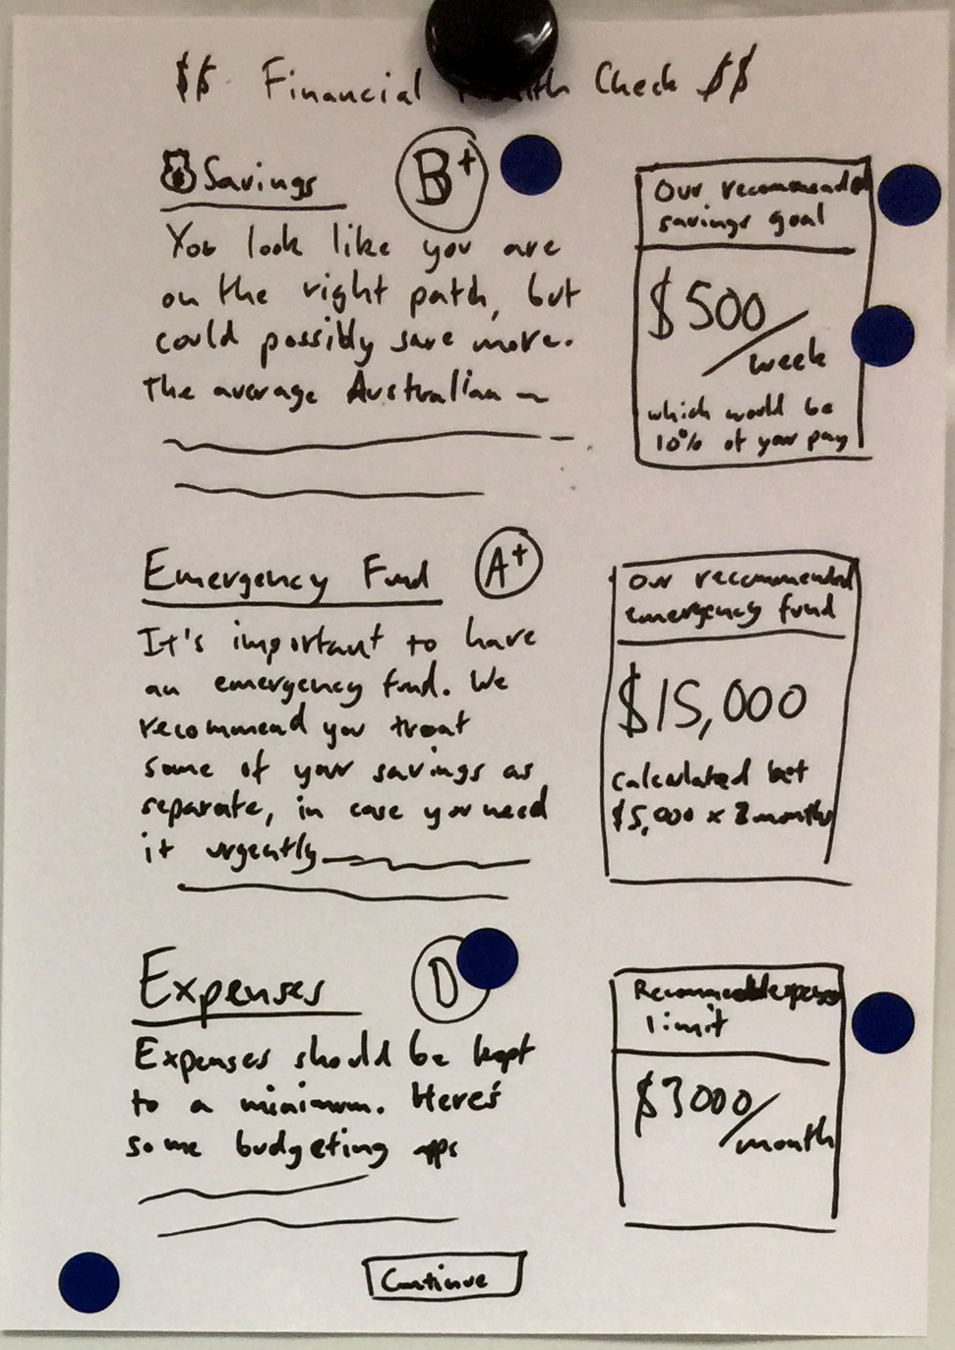 $$ Financial Health Check $$
Savings
B+
You look like you are
on the right path, but
could possibly save more.
The average Australian
Our recommended
savings goal
$500
/week
which would be
10% of your pay
Emergency Fund
A+
It's important to have
an emergency fund. We
recommend you treat
some of your savings as
separate, in case you need
it urgently
Our recommended
emergency fund
$15,000
calculated
$5,000 x 3 months
Expenses
D
Expenses should be kept
to a minimum. Here's
some budgeting apps
Recommended expense
limit
$3000
/month
Continue